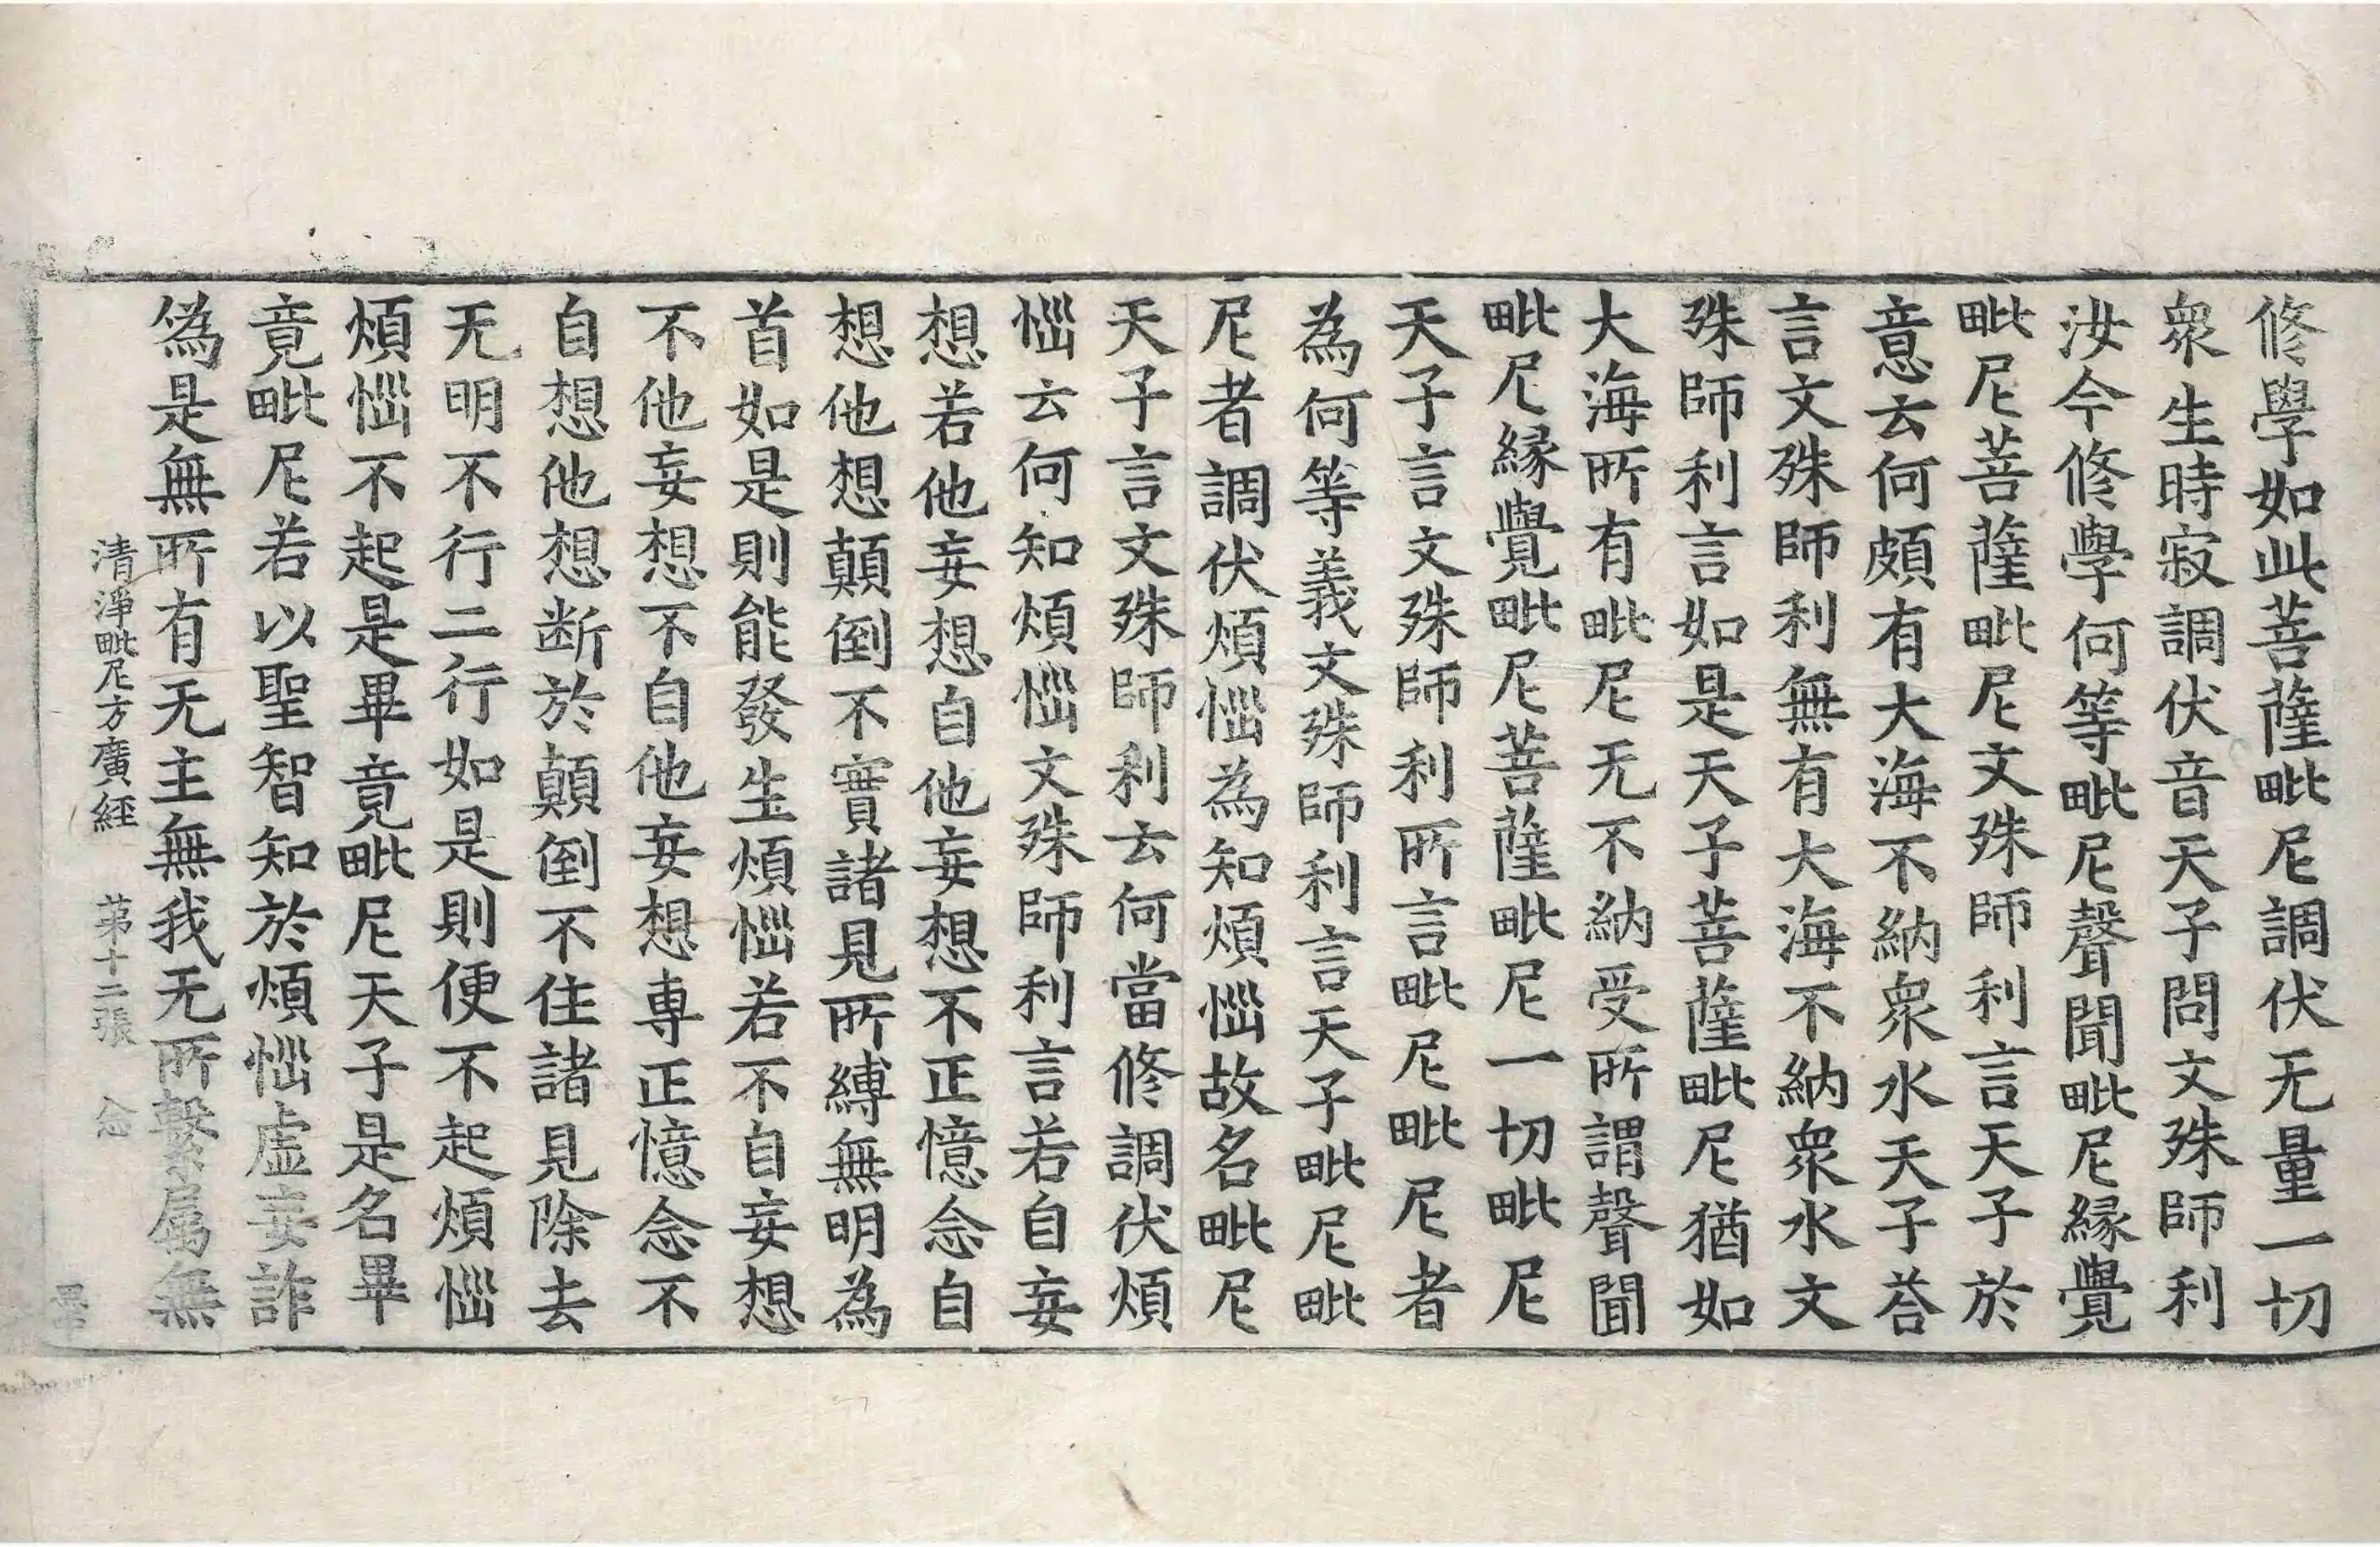 修學如此菩薩毗尼調伏无量一切
衆生時寂調伏音天子問文殊師利
汝今修學何等毗尼聲聞毗尼縁覺
毗尼菩薩毗尼文殊師利言天子於
意云何頗有大海不納衆水天子荅
言文殊師利無有大海不納衆水文
殊師利言如是天子菩薩毗尼猶如
大海所有毗尼无不納受所謂聲聞
毗尼縁覺毗尼菩薩毗尼一切毗尼
天子言文殊師利所言毗尼毗尼者
為何等義文殊師利言天子毗尼毗
尼者調伏煩惱為知煩惱故名毗尼
天子言文殊師利云何當修調伏煩
惱云何知煩惱文殊師利言若自妄
想若他妄想自他妄想不正憶念自
想他想顛倒不實諸見所縛無明為
首如是則能發生煩惱若不自妄想
不他妄想不自他妄想專正憶念不
自想他想断於顛倒不住諸見除去
无明不行二行如是則便不起煩惱
煩惱不起是畢竟毗尼天子是名畢
竟毗尼若以聖智知於煩惱虛妄詐
偽是無所有无主無我无所繫属無
清淨毗尼方廣經 苐十二張 念